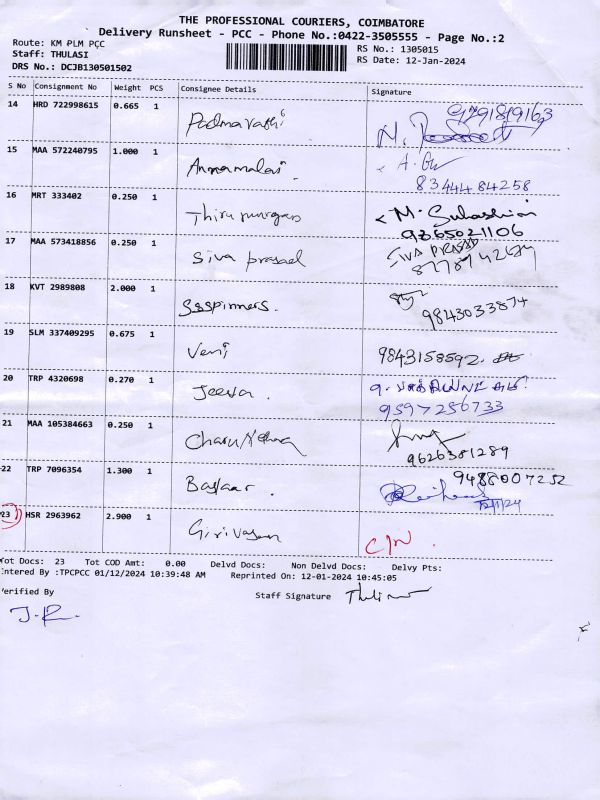 THE PROFESSIONAL COURIERS, COIMBATORE
Delivery Runsheet - PCC - Phone No.:0422-3505555 - Page No.:2
Route: KM PLM PCC
RS No.: 1305015
Staff: THULASI
RS Date: 12-Jan-2024
DRS No.: DCJB130501502
S No Consignment No Weight PCS Consignee Details Signature
14 HRD 722998615 0.665 1 Padmavathi
15 MAA 572240795 1.000 1 Annamalai. A. 
8344484258
16 MRT 333402 0.250 1 Thirumurugan M. Suhashini
9865021106
17 MAA 573418856 0.250 1 Siva prasad SIVA PRASAD
18 KVT 2989808 2.000 1 Ssspinners.
9843033874
19 SLM 337409295 0.675 1 Veni 9843158592.
20 TRP 4320698 0.270 1 Jeeva.
9597256733
21 MAA 105384663 0.250 1
9626381289
22 TRP 7096354 1.300 1 Baskar. 9488007252
12/1/24
23 HSR 2963962 2.900 1 Girivasan
Tot Docs: 23 Tot COD Amt: 0.00 Delvd Docs: Non Delvd Docs: Delvy Pts:
Entered By :TPCPCC 01/12/2024 10:39:48 AM Reprinted On: 12-01-2024 10:45:05
Verified By Staff Signature
J.R.